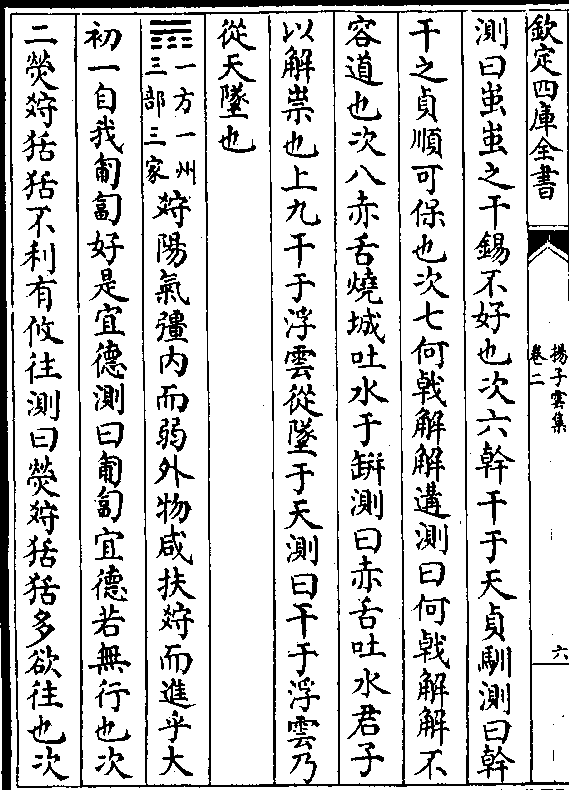 欽定四庫全書
揚子雲集
卷二
六
測曰蚩蚩之干錫不好也次六幹干于天貞馴測曰幹
干之貞順可保也次七何㦸解解遘測曰何㦸解解不
容道也次八赤舌燒城吐水于缾測曰赤舌吐水君子
以解祟也上九干于浮雲從墜于天測曰干于浮雲乃
從天墜也
一方一州
三部三家
㝈陽氣彊内而弱外物咸扶㝈而進乎大
初一自我匍匐好是宜德測曰匍匐宜德若無行也次
二熒㝈狧狧不利有攸往測曰熒㝈狧狧多欲往也次